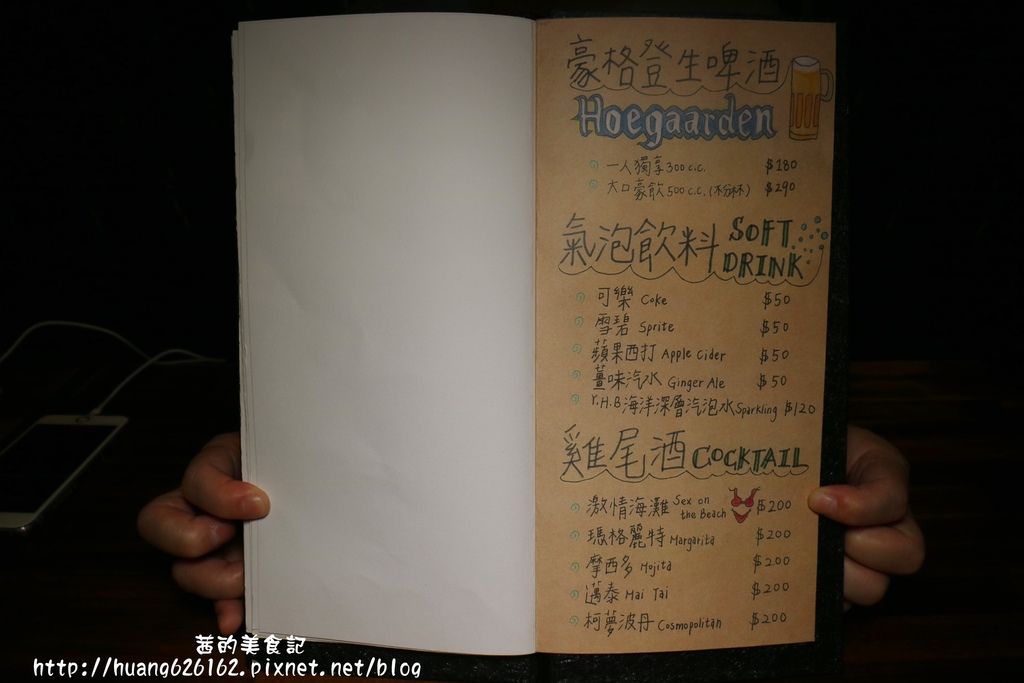 豪格登生啤酒
Hoegaarden
一人獨享300c.c. $180
大口豪飲500c.c.(木分杯) $290
氣泡飲料 SOFT DRINK
可樂 Coke $50
雪碧 Sprite $50
蘋果西打 Apple Cider $50
薑味汽水 Ginger Ale $50
Y.H.B海洋深層汽泡水Sparkling $120
雞尾酒 COCKTAIL
激情海灘 Sex on the Beach $200
瑪格麗特 Margarita $200
摩西多 Mojita $200
邁泰 Mai Tai $200
柯夢波丹 Cosmopolitan $200
茜的美食記
http://huang626162.pixnet.net/blog